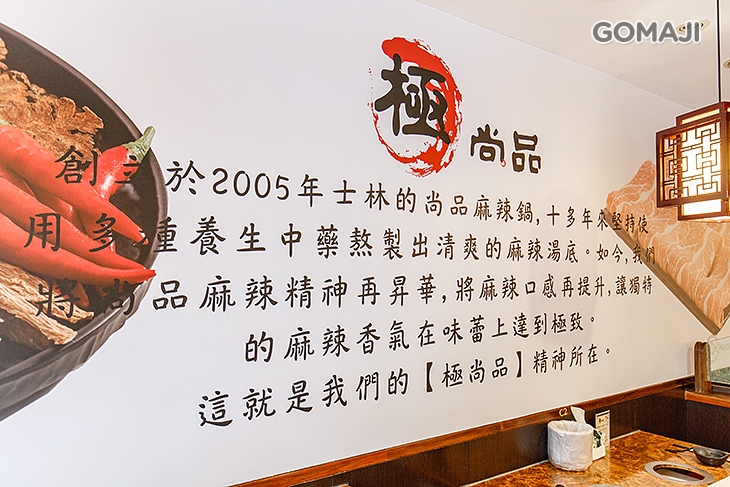 GOMAJI
極尚品
創立於2005年士林的尚品麻辣鍋,十多年來堅持使
用多種養生中藥熬製出清爽的麻辣湯底。如今,我們
將尚品麻辣精神再昇華,將麻辣口感再提升,讓獨特
的麻辣香氣在味蕾上達到極致。
這就是我們的【極尚品】精神所在。
C2